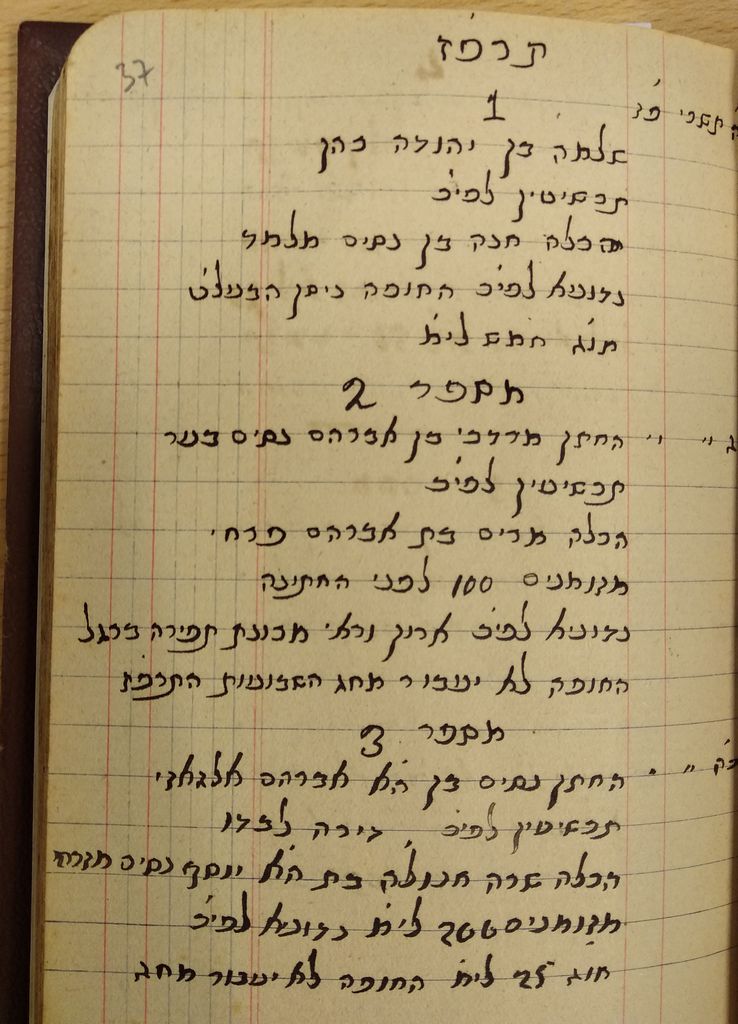 37
תרפ״ז
1
שלמה בן יהודה כהן
תכשיטין לפי״כ
הכלה חנה בן נסים מלמד
נדוניא לפי״כ החופה ניסן הבעל״ט
חוג חמש לי״מ
מספר 2
החתן מרדכי בן אברהם נסים
תכשיטין לפי״כ
הכלה מרים בת אברהם פרחי
מזומנים 100 לפני החתונה
נדוניא לפי״כ ארון וראי מכונת תפירה ברגל
החופה לא יעבור מחג השבועות התרפ״ז
מספר 3
החתן נסים בן ה״א אברהם אלגאזי
תכשיטין לפי״כ , דירה לבדו
הכלה שרה חנולה בת ה״א יוסף נסים מזרחי
מזומנים 200 לי״מ נדוניא לפי״כ
חוג 25 לי״מ החופה לא יעבור מחג